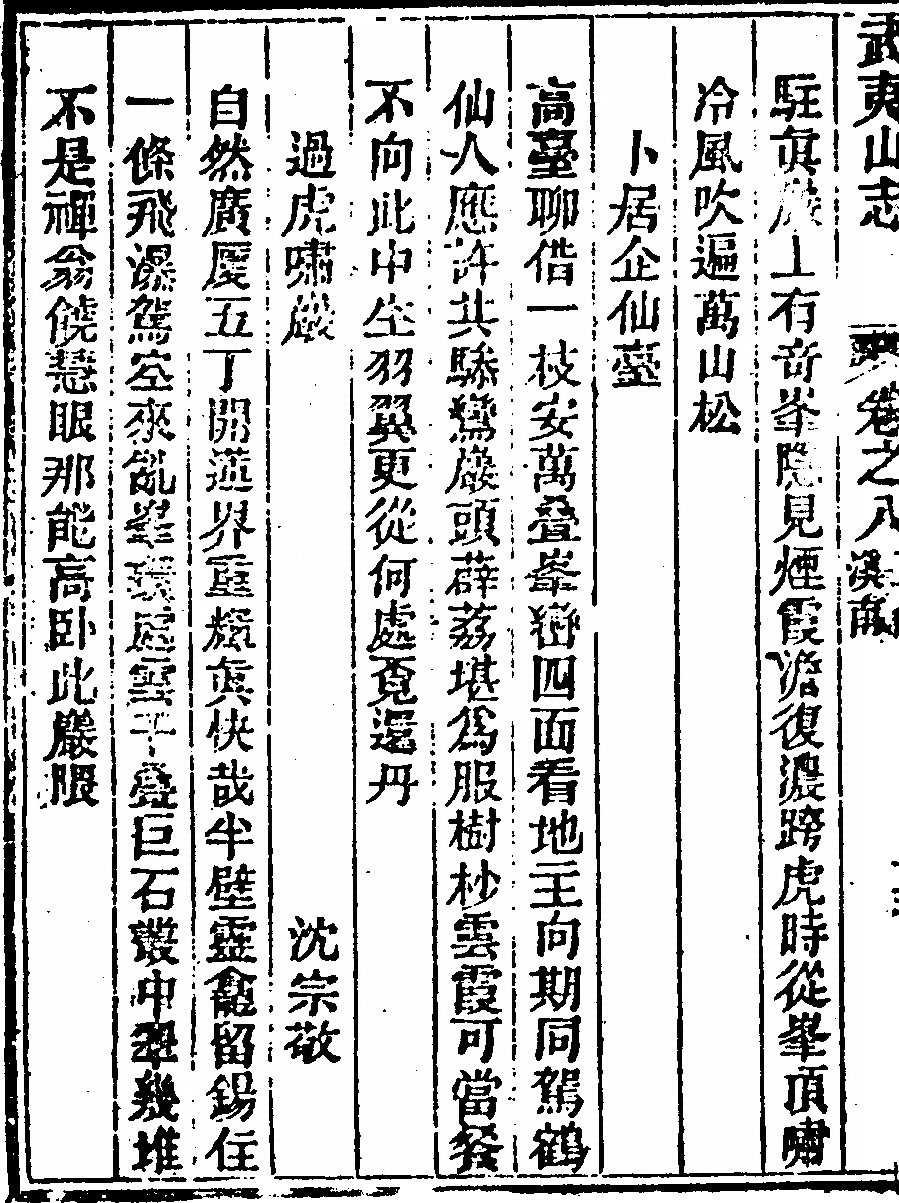 武夷山志 卷之八 溪南
駐真巖上有奇峯隱見煙霞澹復濃跨虎時從峯頂嘯
冷風吹遍萬山松
卜居企仙臺
高臺聊借一枝安萬叠峯巒四面看地主向期同駕鶴
仙人應許共驂鸞巖頭薜荔堪爲服樹杪雲霞可當餐
不向此中生羽翼更從何處覓還丹
過虎嘯巖 沈宗敬
自然廣厦五丁開蓮界重頽眞快哉半壁靈龕留錫住
一條飛瀑駕空來亂峯環處雲千叠巨石叢中翠幾堆
不是禪翁饒慧眼那能高卧此巖隈